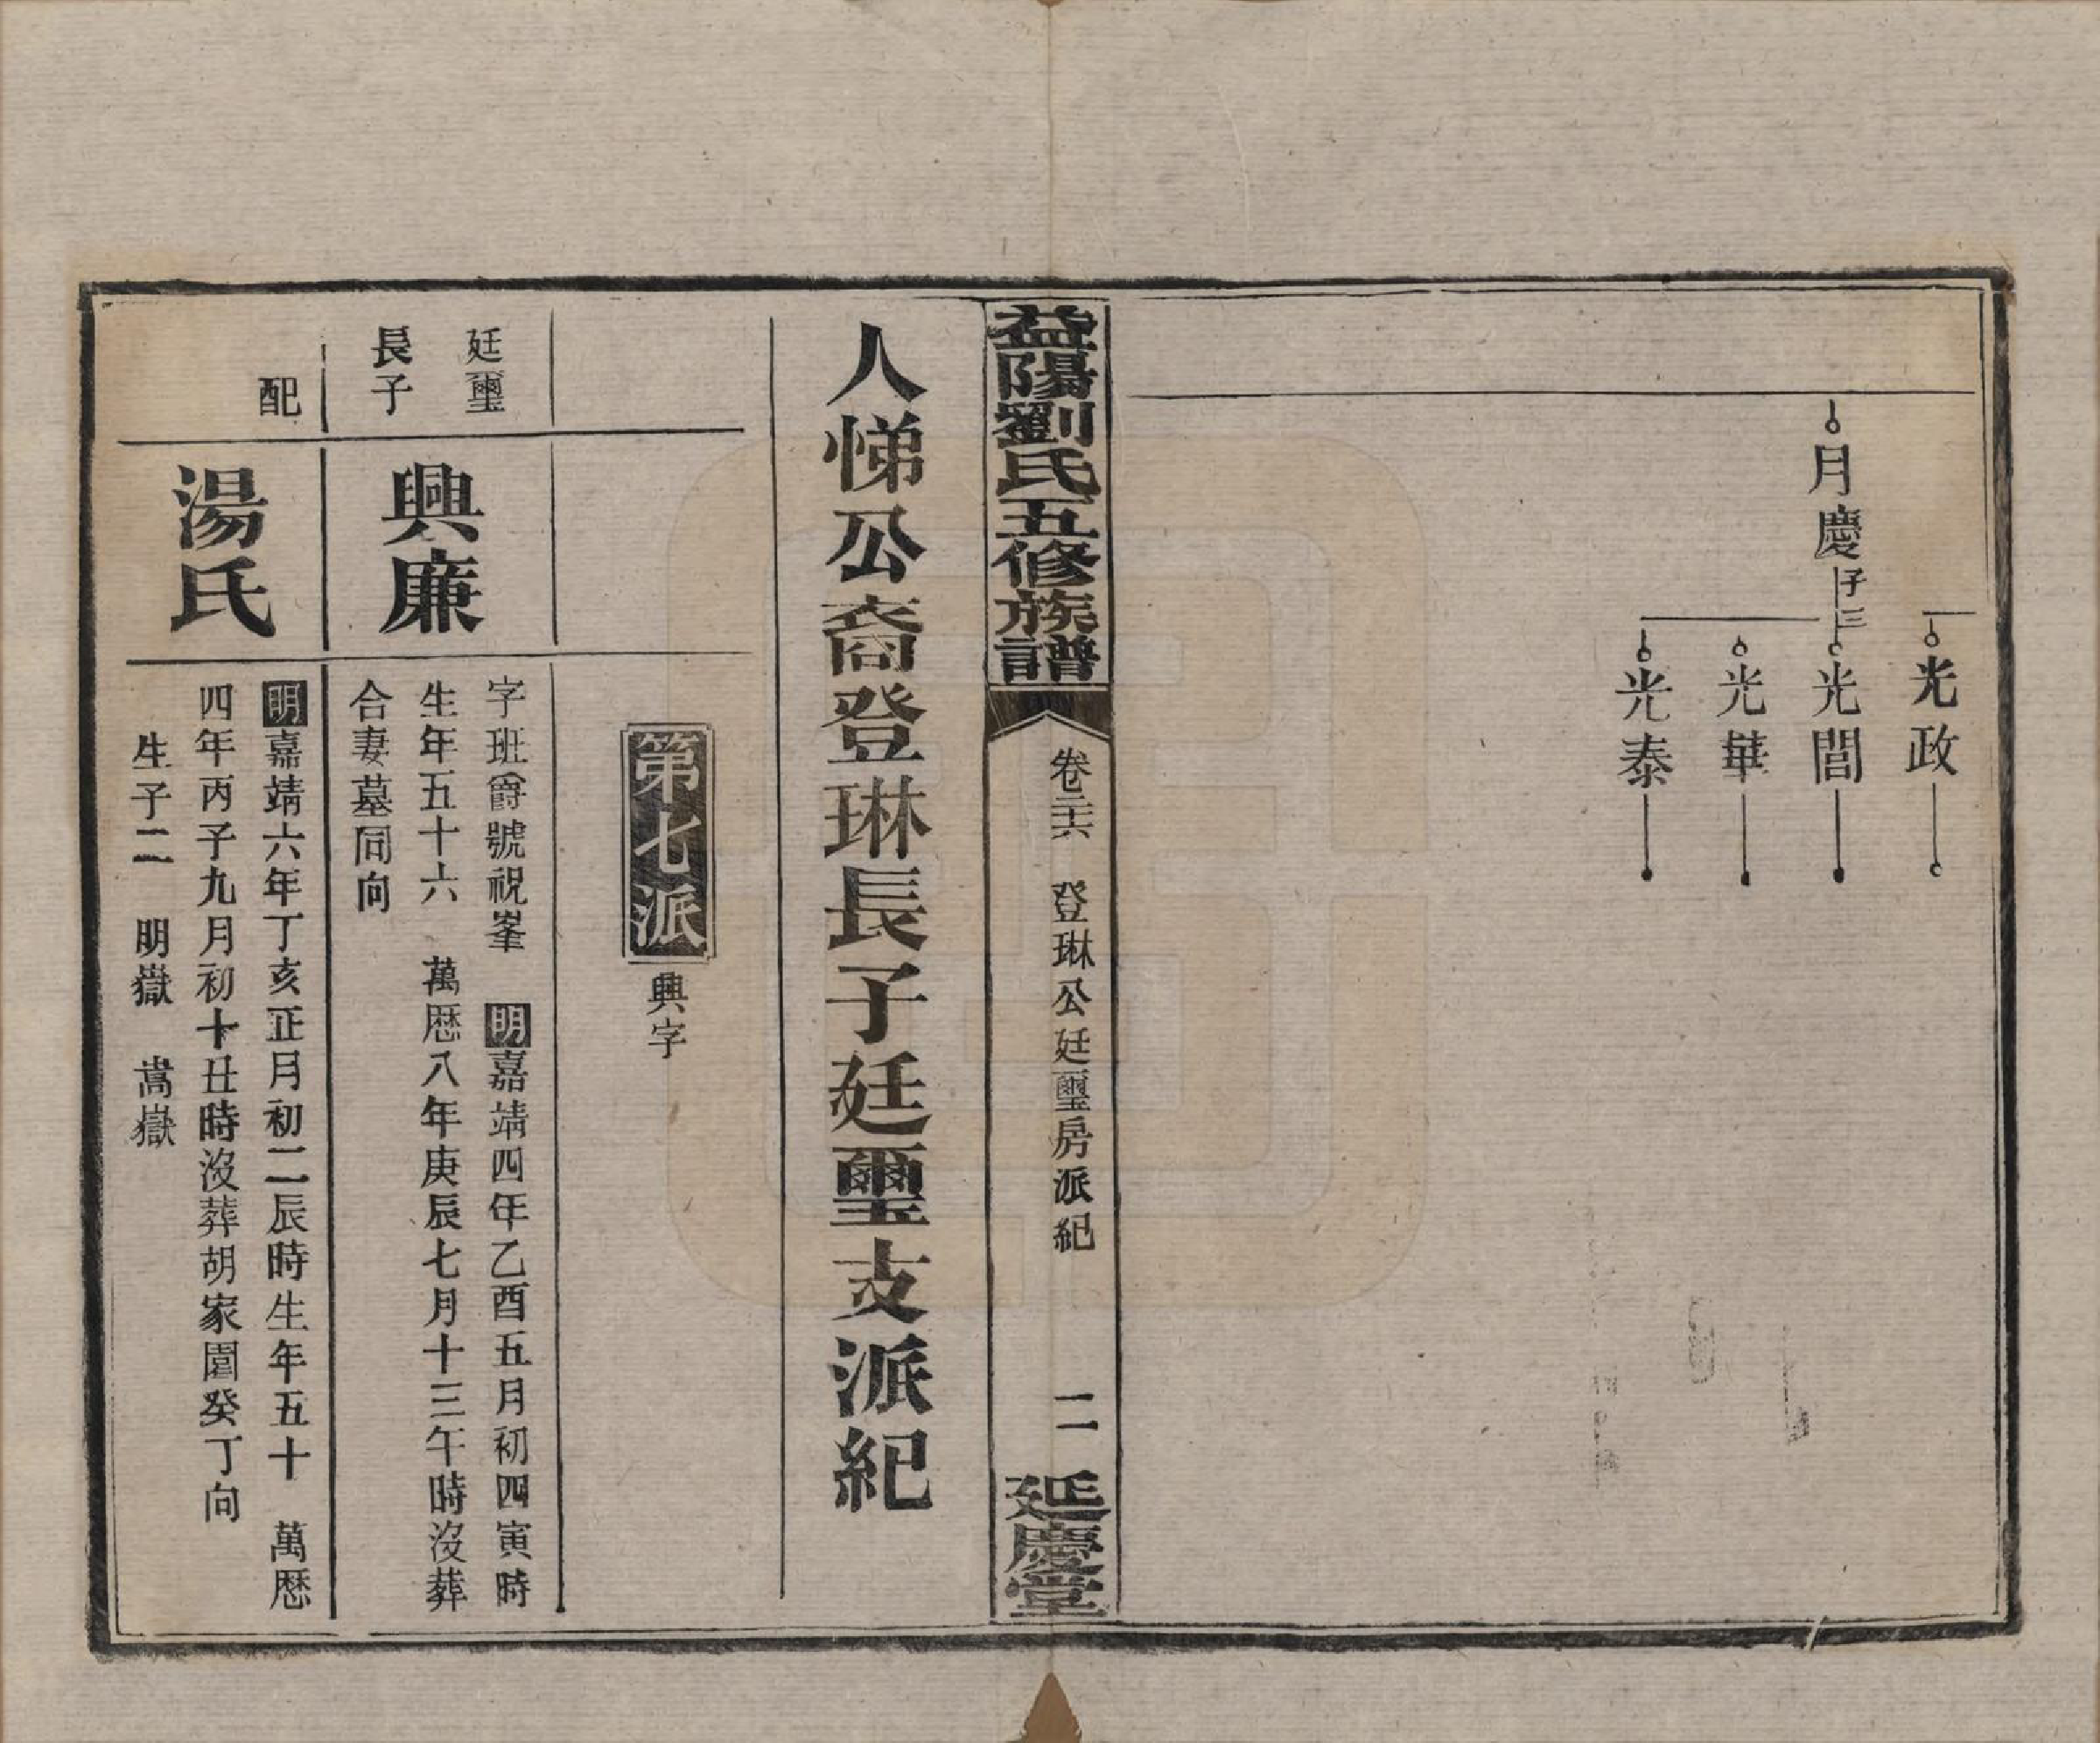 光政
月慶子三
光閭
光華
光泰
益陽劉氏五修族譜
卷二六　登琳公廷璽房派紀
二
延慶堂
人悌公裔登琳長子廷璽支派紀
第七派
興字
廷璽
長子
興廉
字班爵號祝峯　明嘉靖四年乙酉五月初四寅時
生年五十六　萬歷八年庚辰七月十三午時沒葬
合妻墓同向
配
湯氏
明嘉靖六年丁亥正月初二辰時生年五十　萬歷
四年丙子九月初十丑時沒葬胡家園癸丁向
生子二　明嶽　嵩嶽